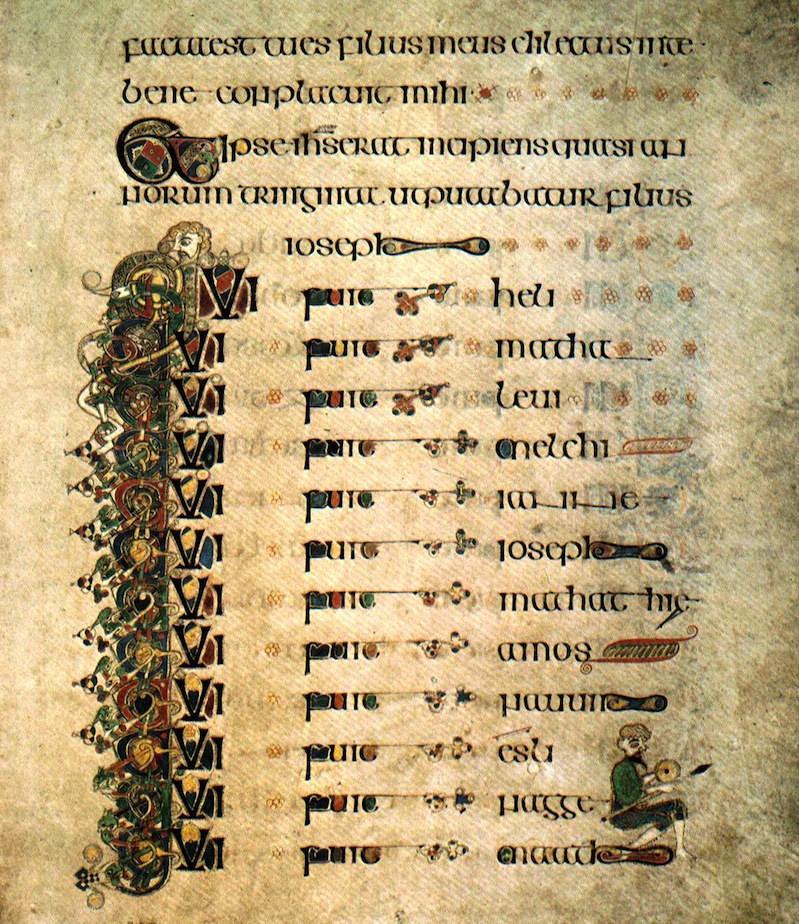 facta est tu es filius meus dilectus in te
bene conplacuit mihi
Et ipse ihs erat incipiens quasi an
norum triginta ut putabatur filius
ioseph
QUI fuit heli
QUI fuit matha
QUI fuit leui
QUI fuit melchi
QUI fuit ianne
QUI fuit ioseph
QUI fuit mathathie
QUI fuit amos
QUI fuit nauum
QUI fuit esli
QUI fuit nagge
QUI fuit maath